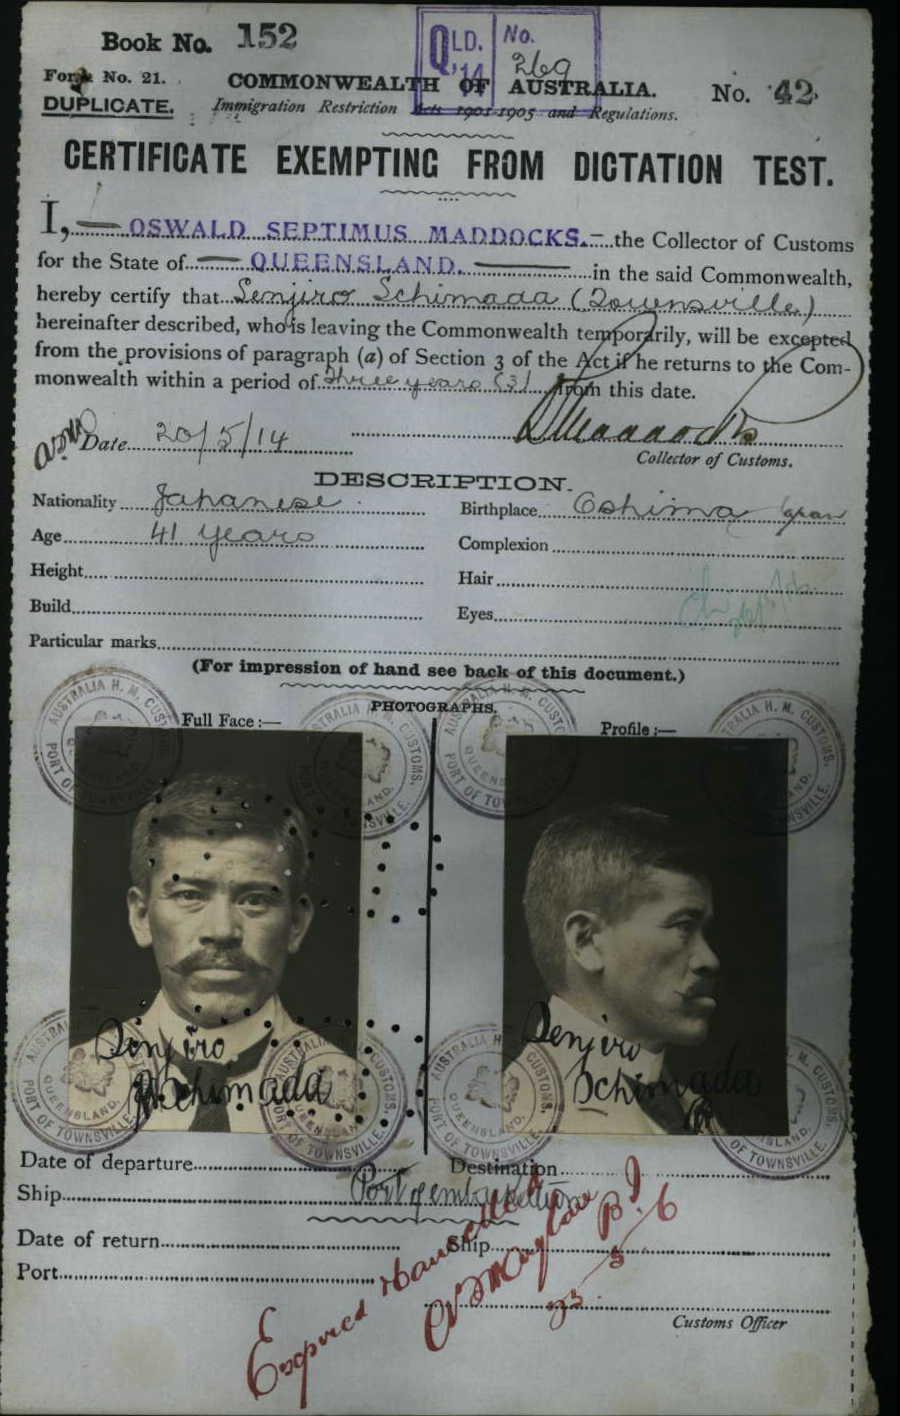 Book No. 152
QLD. '14 No. 269
Form No. 21.
COMMONWEALTH OF AUSTRALIA.
No. 42
DUPLICATE.
Immigration Restriction Acts 1901-1905 and Regulations.
CERTIFICATE EXEMPTING FROM DICTATION TEST.
I, OSWALD SEPTIMUS MADDOCKS. the Collector of Customs
for the State of QUEENSLAND. in the said Commonwealth,
hereby certify that Senjiro Schimada (Townsville)
hereinafter described, who is leaving the Commonwealth temporarily, will be excepted
from the provisions of paragraph (a) of Section 3 of the Act if he returns to the Com-
monwealth within a period of three years (3) from this date.
Date 20/5/14
Collector of Customs.
DESCRIPTION.
Nationality Japanese Birthplace Oshima Japan
Age 41 years Complexion
Height Hair
Build Eyes
Particular marks
(For impression of hand see back of this document.)
PHOTOGRAPHS.
Full Face :— Profile :—
AUSTRALIA H. M. CUSTOMS. PORT OF TOWNSVILLE. QUEENSLAND.
AUSTRALIA H. M. CUSTOMS. PORT OF TOWNSVILLE. QUEENSLAND.
Senjiro Schimada
Senjiro Schimada
AUSTRALIA H. M. CUSTOMS. PORT OF TOWNSVILLE. QUEENSLAND.
AUSTRALIA H. M. CUSTOMS. PORT OF TOWNSVILLE. QUEENSLAND.
Date of departure Destination
Ship Port of embarkation
Date of return Ship
Port
Expired Cancelled
Customs Officer